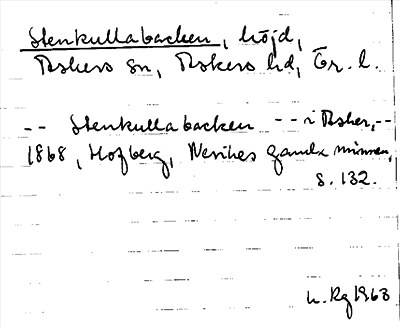 Stenkullabacken, höjd,
Askers sn, Askers hd, Ör. l.
-- Stenkullabacken -- i Asker, --
1868, Hofberg, Nerikes gamla minnen,
s. 132.
1963